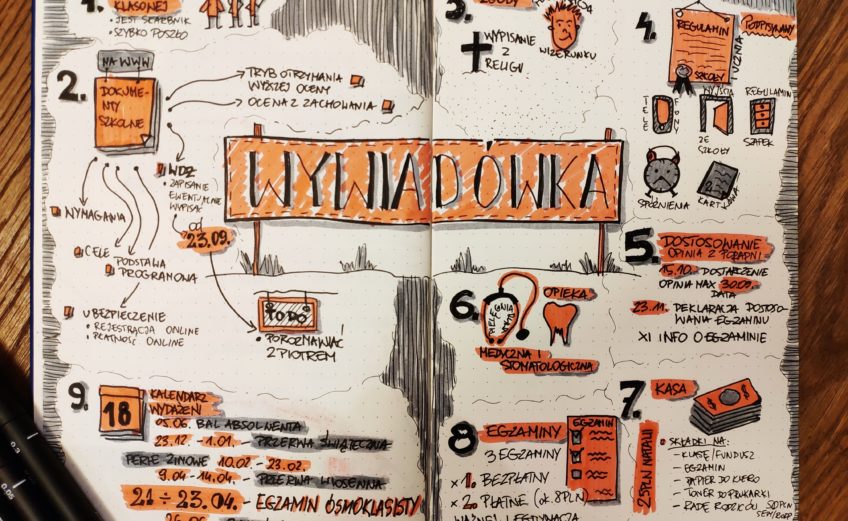 1.
KLASOWEJ
• JEST SKARBNIK
• SZYBKO POSZŁO
2.
NA WWW
DOKUME-
NTY
SZKOLNE
TRYB OTRZYMANIA
WYŻSZEJ OCENY
OCENA Z ZACHOWANIA
WDŻ
• ZAPISANIE
EWENTUALNE
WYPISAĆ
od
23.09.
WYMAGANIA
CELE
PODSTAWA
PROGRAMOWA
UBEZPIECZENIE
• REJESTRACJA ONLINE
• PŁATNOŚĆ ONLINE
TO DO
• POROZMAWIAĆ
Z PIOTREM
WYWIADÓWKA
3.
ZGODY
WIZERUNKU
WYPISANIE
Z
RELIGII
4.
REGULAMIN
SZKOŁY
PODPISUJEMY
UCZNIA
TELE
FONY
WYJŚCIA
ZE
SZKOŁY
REGULAMIN
SZAFEK
SPÓŹNIENIA
KARTKÓWKA
5.
DOSTOSOWANIE
OPINIA Z PORADNI
15.10. DOSTARCZENIE
OPINIA MAX 30.09.
DATA
23.11. DEKLARACJA DOSTOSO-
WANIA EGZAMINU
XI INFO O EGZAMINIE
6.
OPIEKA
MEDYCZNA I
STOMATOLOGICZNA
7.
KASA
SKŁADKI NA:
– KLASĘ/FUNDUSZ
– EGZAMIN
– PAPIER DO KSERO
– TONER DO DRUKARKI
– RADĘ RODZICÓW
50PLN
8
EGZAMINY
EGZAMIN
3 EGZAMINY
× 1. BEZPŁATNY
× 2. PŁATNE (ok. 8PLN)
WAŻNEJ LEGITYMACJA
9.
18
KALENDARZ
WYDARZEŃ
05.06. BAL ABSOLWENTA
23.12 - 1.01. - PRZERWA ŚWIĄTECZNA
FERIE ZIMOWE 10.02. - 23.02.
9.04 - 14.04. - PRZERWA WIOSENNA
21 ÷ 23.04. - EGZAMIN ÓSMOKLASISTY
0.3
0.05